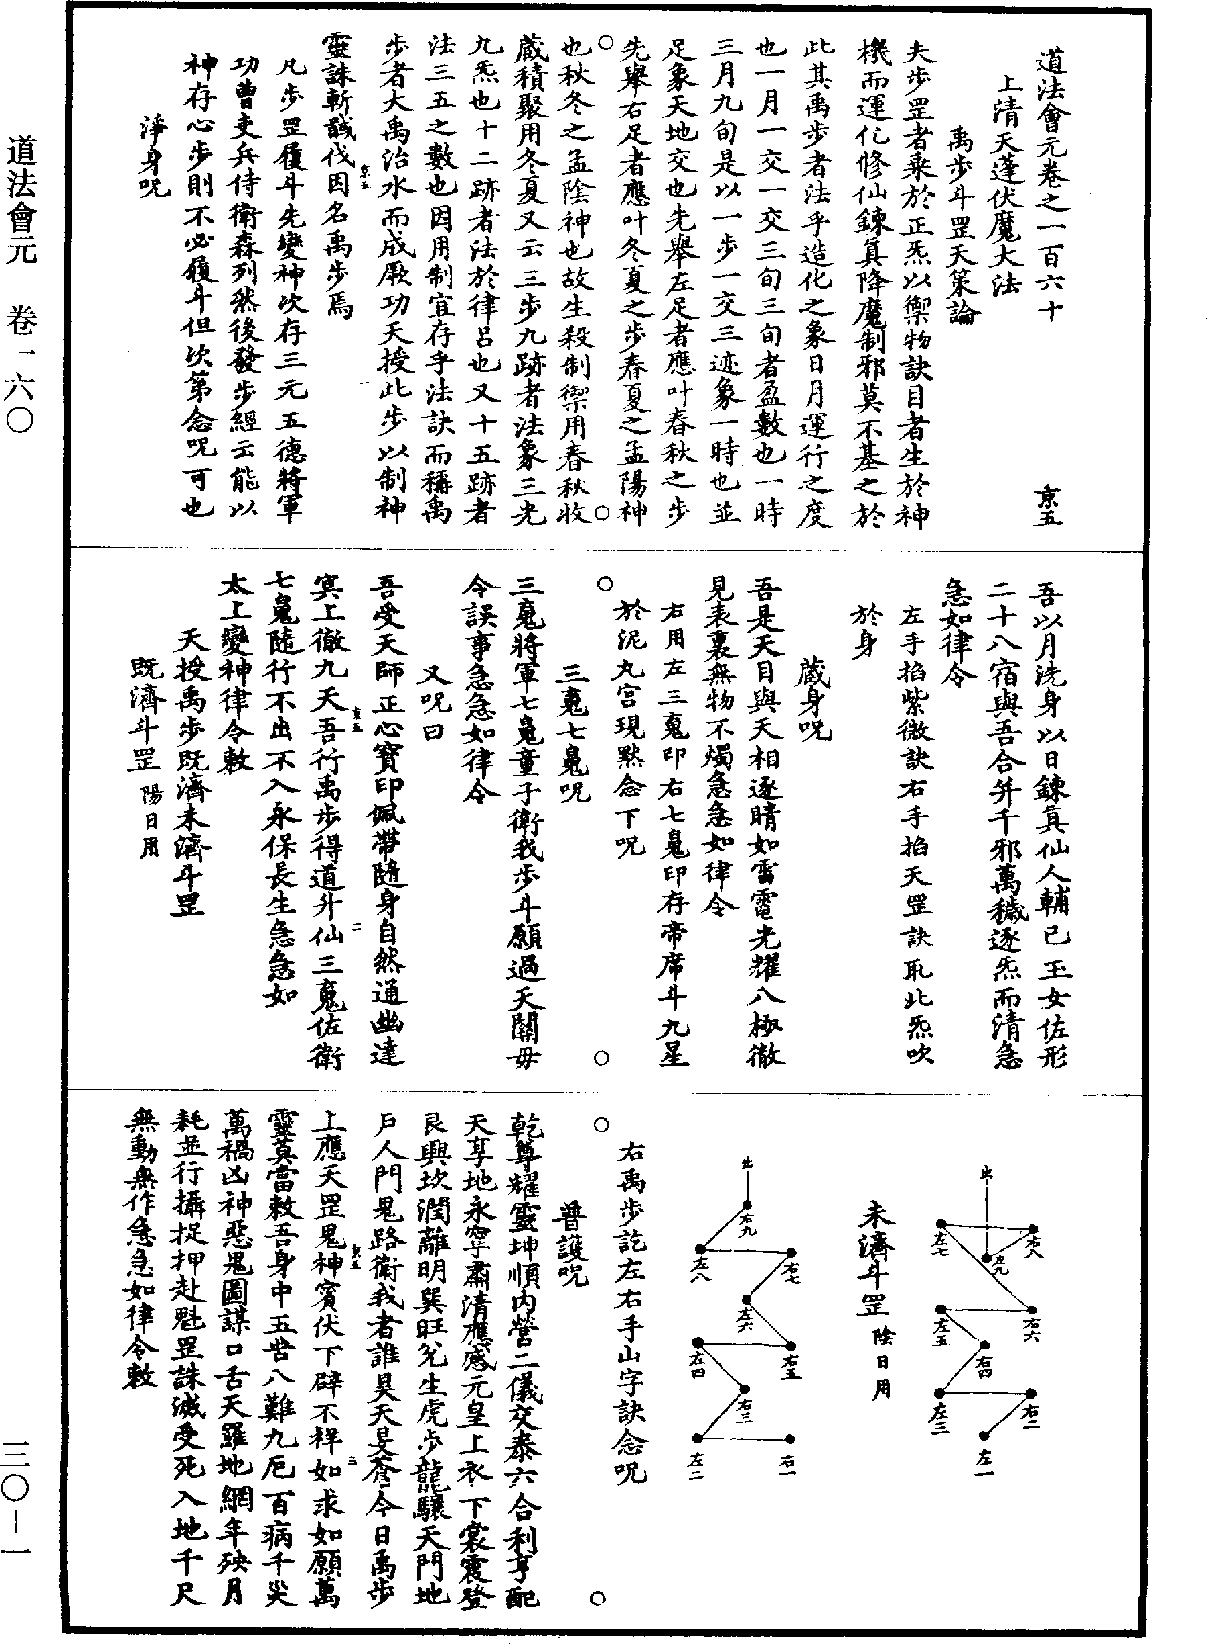 道法會元卷之一百六十　京五
上清天蓬伏魔大法
禹步斗罡天策論
夫步罡者乘於正炁以禦物訣目者生於神
機而運化修仙鍊真降魔制邪莫不基之於
此其禹步者法乎造化之象日月運行之度
也一月一交一交三旬三旬者盈數也一時
三月九旬是以一步一交三迹象一時也並
足象天地交也先舉左足者應叶春秋之步
先舉右足者應叶冬夏之步春夏之孟陽神
也秋冬之孟陰神也故生殺制禦用春秋收
藏積聚用冬夏又云三步九跡者法象三光
九炁也十二跡者法於律呂也又十五跡者
法三五之數也因用制宜存乎法訣而稱禹
步者大禹治水而成厥功天授此步以制神
靈誅斬馘伐因名禹步焉
凡步罡履斗先變神次存三元五德將軍
功曹吏兵侍衛森列然後發步經云能以
神存心步則不必履斗但次第念呪可也
淨身呪
吾以月洗身以日鍊真仙人輔己玉女佐形
二十八宿與吾合并千邪萬穢逐炁而清急
急如律令
左手掐紫微訣右手掐天罡訣取此炁吹
於身
藏身呪
吾是天目與天相逐睛如雷電光耀八極徹
見表裏無物不燭急急如律令
右用左三䰟印右七鬽印存帝席斗九星
於泥丸宮現黙念下呪
三䰟七鬽呪
三䰟將軍七鬽童子衛我步斗願過天關毋
令誤事急急如律令
又呪曰
吾受天師正心寳印佩帶隨身自然通幽達
冥上徹九天吾行禹步得道升仙三䰟佐衛
七鬽隨行不出不入永保長生急急如
太上變神律令敕
天授禹步既濟未濟斗罡
既濟斗罡 陽日用
左一
右二
左三
右四
左五
右六
左七
右八
左九
出
未濟斗罡 陰日用
右一
左二
右三
左四
右五
左六
右七
左八
右九
出
右禹步訖左右手山字訣念呪
普護呪
乾尊耀靈坤順內營二儀交泰六合利亨配
天享地永寧肅清應感元皇上衣下裳震登
艮興坎潤離明巽旺兌生虎步龍驤天門地
戶人門鬼路衛我者誰昊天旻蒼今日禹步
上應天罡鬼神賓伏下辟不祥如求如願萬
靈莫當敕吾身中五苦八難九厄百病千災
萬禍凶神惡鬼圖謀口舌天羅地網年殃月
耗並行攝捉押赴魁罡誅滅受死入地千尺
無動無作急急如律令敕
道法會元　卷一六〇
三〇－一